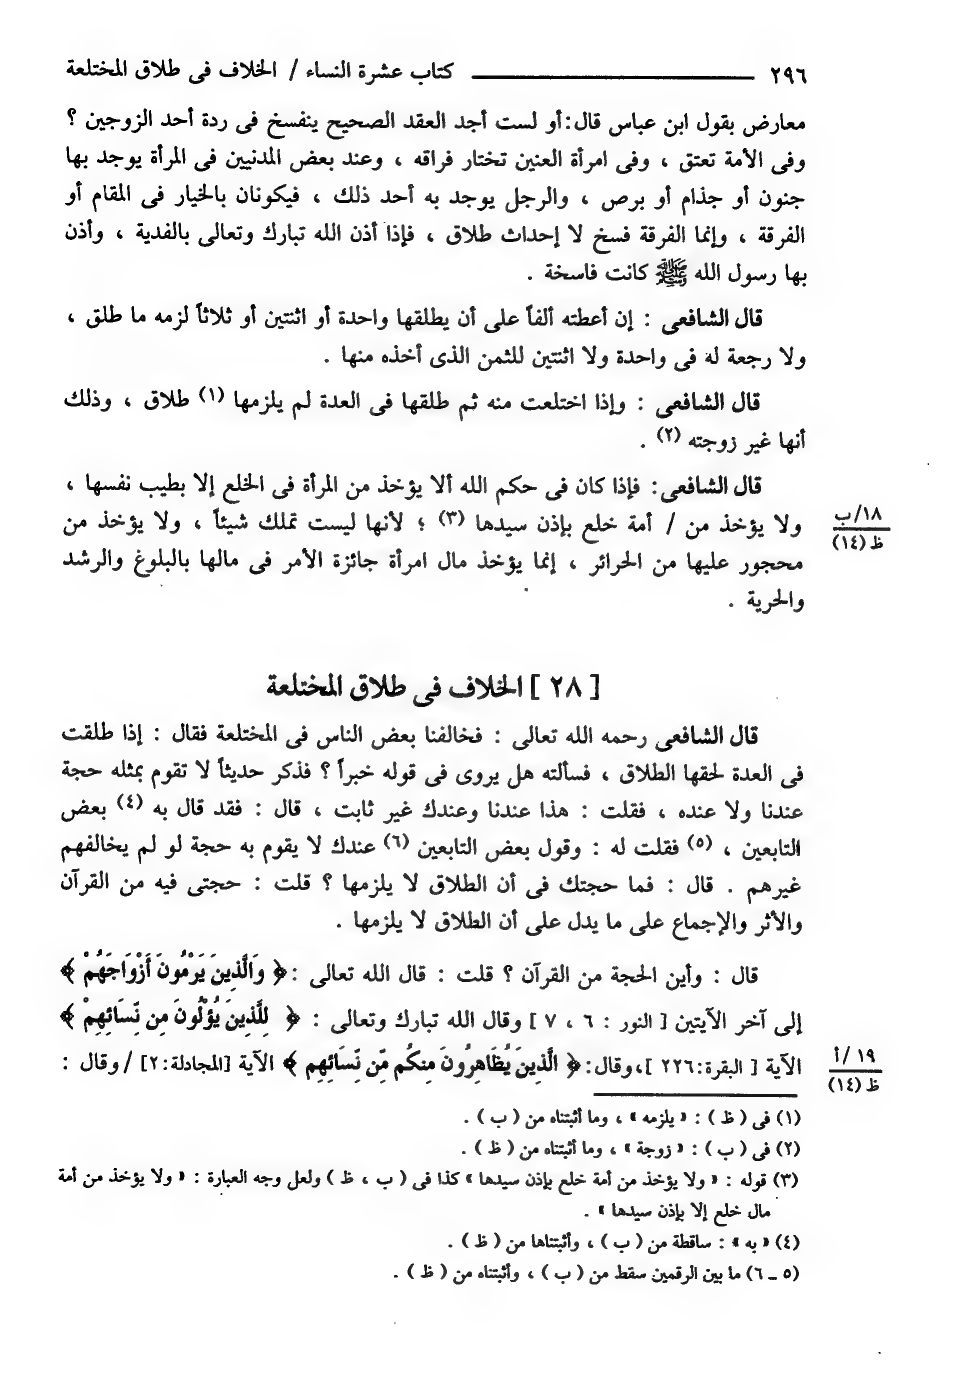 ٢٩٦ ــــــــــــــــــ كتاب عشرة النساء / الخلاف فى طلاق المختلعة
معارض بقول ابن عباس قال: أو لست أجد العقد الصحيح ينفسخ فى ردة أحد الزوجين ؟
وفى الأمة تعتق ، وفى امرأة العنين تختار فراقه ، وعند بعض المدنيين فى المرأة يوجد بها
جنون أو جذام أو برص ، والرجل يوجد به أحد ذلك ، فيكونان بالخيار فى المقام أو
الفرقة ، وإنما الفرقة فسخ لا إحداث طلاق ، فإذا أذن الله تبارك وتعالى بالفدية ، وأذن
بها رسول الله ﷺ كانت فاسخة .
قال الشافعى : إن أعطته ألفاً على أن يطلقها واحدة أو اثنتين أو ثلاثاً لزمه ما طلق ،
ولا رجعة له فى واحدة ولا اثنتين للثمن الذى أخذه منها .
قال الشافعى : وإذا اختلعت منه ثم طلقها فى العدة لم يلزمها (١) طلاق ، وذلك
أنها غير زوجته (٢) .
قال الشافعى: فإذا كان فى حكم الله ألا يؤخذ من المرأة فى الخلع إلا بطيب نفسها ،
١٨/ب
ولا يؤخذ من / أمة خلع بإذن سيدها (٣) ؛ لأنها ليست تملك شيئاً ، ولا يؤخذ من
ظ (١٤)
محجور عليها من الحرائر ، إنما يؤخذ مال امرأة جائزة الأمر فى مالها بالبلوغ والرشد
والحرية .
[ ٢٨ ] الخلاف فى طلاق المختلعة
قال الشافعى رحمه الله تعالى : فخالفنا بعض الناس فى المختلعة فقال : إذا طلقت
فى العدة لحقها الطلاق ، فسألته هل يروى فى قوله خبراً ؟ فذكر حديثاً لا تقوم بمثله حجة
عندنا ولا عنده ، فقلت : هذا عندنا وعندك غير ثابت ، قال : فقد قال به (٤) بعض
التابعين ، (٥) فقلت له : وقول بعض التابعين (٦) عندك لا يقوم به حجة لو لم يخالفهم
غيرهم . قال : فما حجتك فى أن الطلاق لا يلزمها ؟ قلت : حجتى فيه من القرآن
والأثر والإجماع على ما يدل على أن الطلاق لا يلزمها .
قال : وأين الحجة من القرآن ؟ قلت : قال الله تعالى : ﴿ وَالَّذِينَ يَرْمُونَ أَزْوَاجَهُمْ ﴾
إلى آخر الآيتين [ النور : ٦ ، ٧ ] وقال الله تبارك وتعالى : ﴿ لِلَّذِينَ يُؤْلُونَ مِن نِّسَائِهِمْ ﴾
١٩ /أ
الآية [ البقرة: ٢٢٦ ]، وقال: ﴿ الَّذِينَ يُظَاهِرُونَ مِنكُم مِّن نِّسَائِهِم ﴾ الآية [المجادلة: ٢] / وقال :
ظ (١٤)
(١) فى ( ظ ) : « يلزمه » ، وما أثبتناه من ( ب ) .
(٢) فى ( ب ) : « زوجة » ، وما أثبتناه من ( ظ ) .
(٣) قوله : « ولا يؤخذ من أمة خلع بإذن سيدها » كذا فى ( ب ، ظ ) ولعل وجه العبارة : « ولا يؤخذ من أمة
مال خلع إلا بإذن سيدها » .
(٤) « به » : ساقطة من ( ب ) ، وأثبتناها من ( ظ ) .
(٥ ــ ٦) ما بين الرقمين سقط من ( ب ) ، وأثبتناه من ( ظ ) .